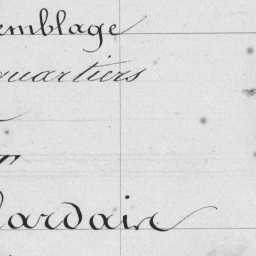 emblage
quartiers
ardain